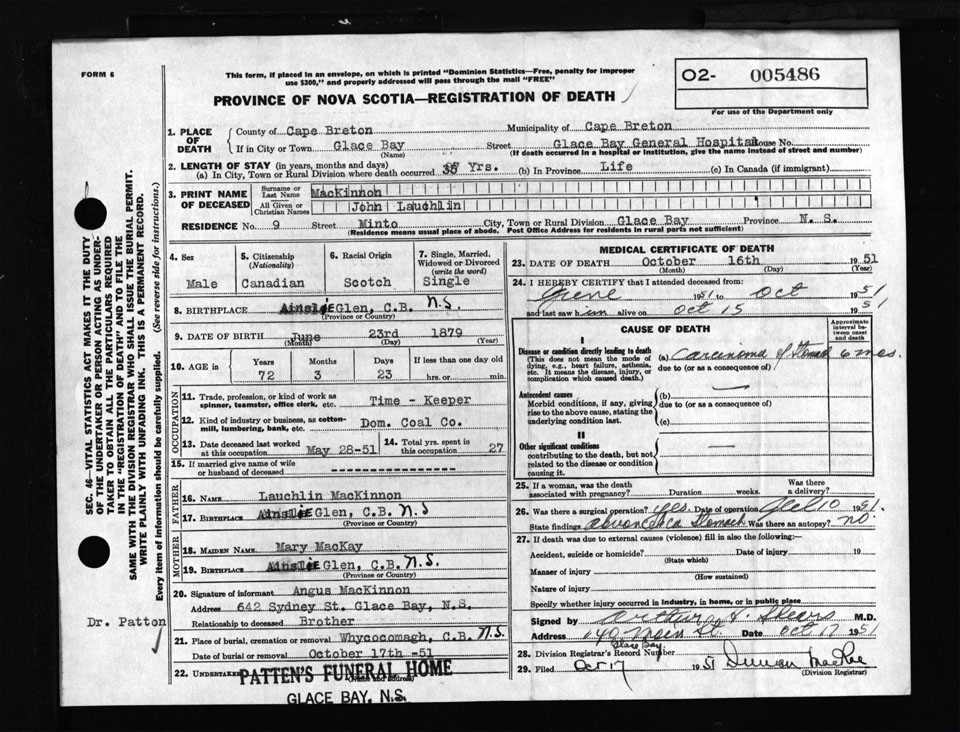 FORM 6
This form, if placed in an envelope, on which is printed "Dominion Statistics—Free, penalty for improper
use $300," and properly addressed will pass through the mail "FREE"
O2- 005486
For use of the Department only
PROVINCE OF NOVA SCOTIA—REGISTRATION OF DEATH
SEC. 46—VITAL STATISTICS ACT MAKES IT THE DUTY
OF THE UNDERTAKER OR PERSON ACTING AS UNDER-
TAKER TO OBTAIN ALL THE PARTICULARS REQUIRED
IN THE "REGISTRATION OF DEATH" AND TO FILE THE
SAME WITH THE DIVISION REGISTRAR WHO SHALL ISSUE THE BURIAL PERMIT.
WRITE PLAINLY WITH UNFADING INK. THIS IS A PERMANENT RECORD.
Every item of information should be carefully supplied. (See reverse side for instructions.)
1. PLACE OF DEATH
County of Cape Breton Municipality of Cape Breton
If in City or Town Glace Bay Street Glace Bay General Hospital House No.
(Name) (If death occurred in a hospital or institution, give the name instead of street and number)
2. LENGTH OF STAY (in years, months and days)
(a) In City, Town or Rural Division where death occurred Yrs. (b) In Province Life (c) In Canada (if immigrant)
3. PRINT NAME OF DECEASED
Surname or Last Name MacKinnon
All Given or Christian Names John Lauchlin
RESIDENCE No. 9 Street Minto City, Town or Rural Division Glace Bay Province N. S.
(Residence means usual place of abode. Post Office Address for residents in rural parts not sufficient)
4. Sex
Male
5. Citizenship (Nationality)
Canadian
6. Racial Origin
Scotch
7. Single, Married, Widowed or Divorced (write the word)
Single
8. BIRTHPLACE Ainslie Glen, C.B. N.S.
(Province or Country)
9. DATE OF BIRTH June 23rd 1879
(Month) (Day) (Year)
10. AGE in Years Months Days If less than one day old
72 3 23 hrs. or min.
OCCUPATION
11. Trade, profession, or kind of work as spinner, teamster, office clerk, etc. Time - Keeper
12. Kind of industry or business, as cotton-mill, lumbering, bank, etc. Dom. Coal Co.
13. Date deceased last worked at this occupation May 28-51
14. Total yrs. spent in this occupation 27
15. If married give name of wife or husband of deceased ----------------
FATHER
16. NAME Lauchlin MacKinnon
17. BIRTHPLACE Ainslie Glen, C.B. N.S
(Province or Country)
MOTHER
18. MAIDEN NAME Mary MacKay
19. BIRTHPLACE Ainslie Glen, C.B. N.S.
(Province or Country)
20. Signature of informant Angus MacKinnon
Address 642 Sydney St. Glace Bay, N.S.
Relationship to deceased Brother
Dr. Patton
21. Place of burial, cremation or removal Whycocomagh, C.B. N.S.
Date of burial or removal October 17th -51
22. UNDERTAKER PATTEN'S FUNERAL HOME
(Name and address)
GLACE BAY, N.S.
MEDICAL CERTIFICATE OF DEATH
23. DATE OF DEATH October 16th 1951
(Month) (Day) (Year)
24. I HEREBY CERTIFY that I attended deceased from:
June 1951 to Oct 1951
and last saw him alive on Oct 15 1951
CAUSE OF DEATH
Approximate interval between onset and death
I
Disease or condition directly leading to death
(This does not mean the mode of dying, e.g., heart failure, asthenia, etc. It means the disease, injury, or complication which caused death.)
(a) Carcinoma of Stomach 6 mos.
due to (or as a consequence of)
Antecedent causes
Morbid conditions, if any, giving rise to the above cause, stating the underlying condition last.
(b) —
due to (or as a consequence of)
(c)
II
Other significant conditions
contributing to the death, but not related to the disease or condition causing it. —
25. If a woman, was the death associated with pregnancy? Duration weeks. Was there a delivery?
26. Was there a surgical operation? yes. Date of operation 10 1951.
State findings Stomach Was there an autopsy? no.
27. If death was due to external causes (violence) fill in also the following:—
Accident, suicide or homicide? Date of injury 19
(State which)
Manner of injury
(How sustained)
Nature of injury
Specify whether injury occurred in industry, in home, or in public place
Signed by Arthur M.D.
Address St. Date Oct 17 1951
Glace Bay.
28. Division Registrar's Record Number
29. Filed Oct 17 1951 Duncan MacRae
(Division Registrar)